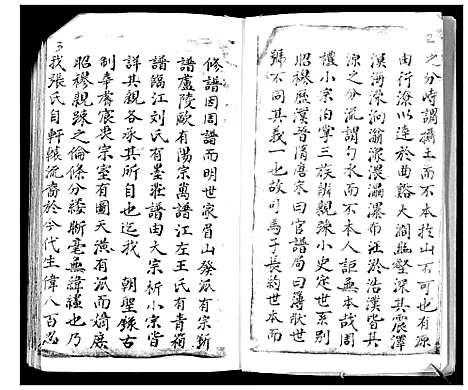 2
之分時謂攝主而不本於山不可也有源
由行潦以達於曲谿大澗幽壑深其震澤
溟海深泂瀚瀑布汪於浩漢皆其
源之分流謂勺水而不本人詎無本哉周
禮小宗伯掌三族辨親疎小史定世系別
昭穆歷漢晉隋唐宋曰官譜局曰簿狀世
號不同其義一也故司馬子長約世本而
修譜因周譜而明世家眉山發派有宗新
譜盧陵歐有陽宗萬譜江左王氏有青箱
譜臨江刘氏有墨莊譜由大宗析小宗皆
詳其親各承其所自也迄我 朝聖錄古
制奉耆宸衷宗室有圖天潢有派而嫡庶
昭穆親疎之倫條分縷斷毫無緯繣也乃
3
我張氏自軒轅流裔於今代生偉人百